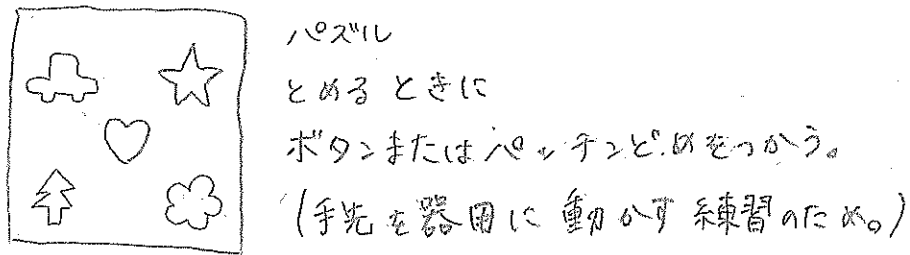 パズル
とめるときに
ボタンまたはパッチンどめをつかう。
(手先を器用に動かす練習のため。)